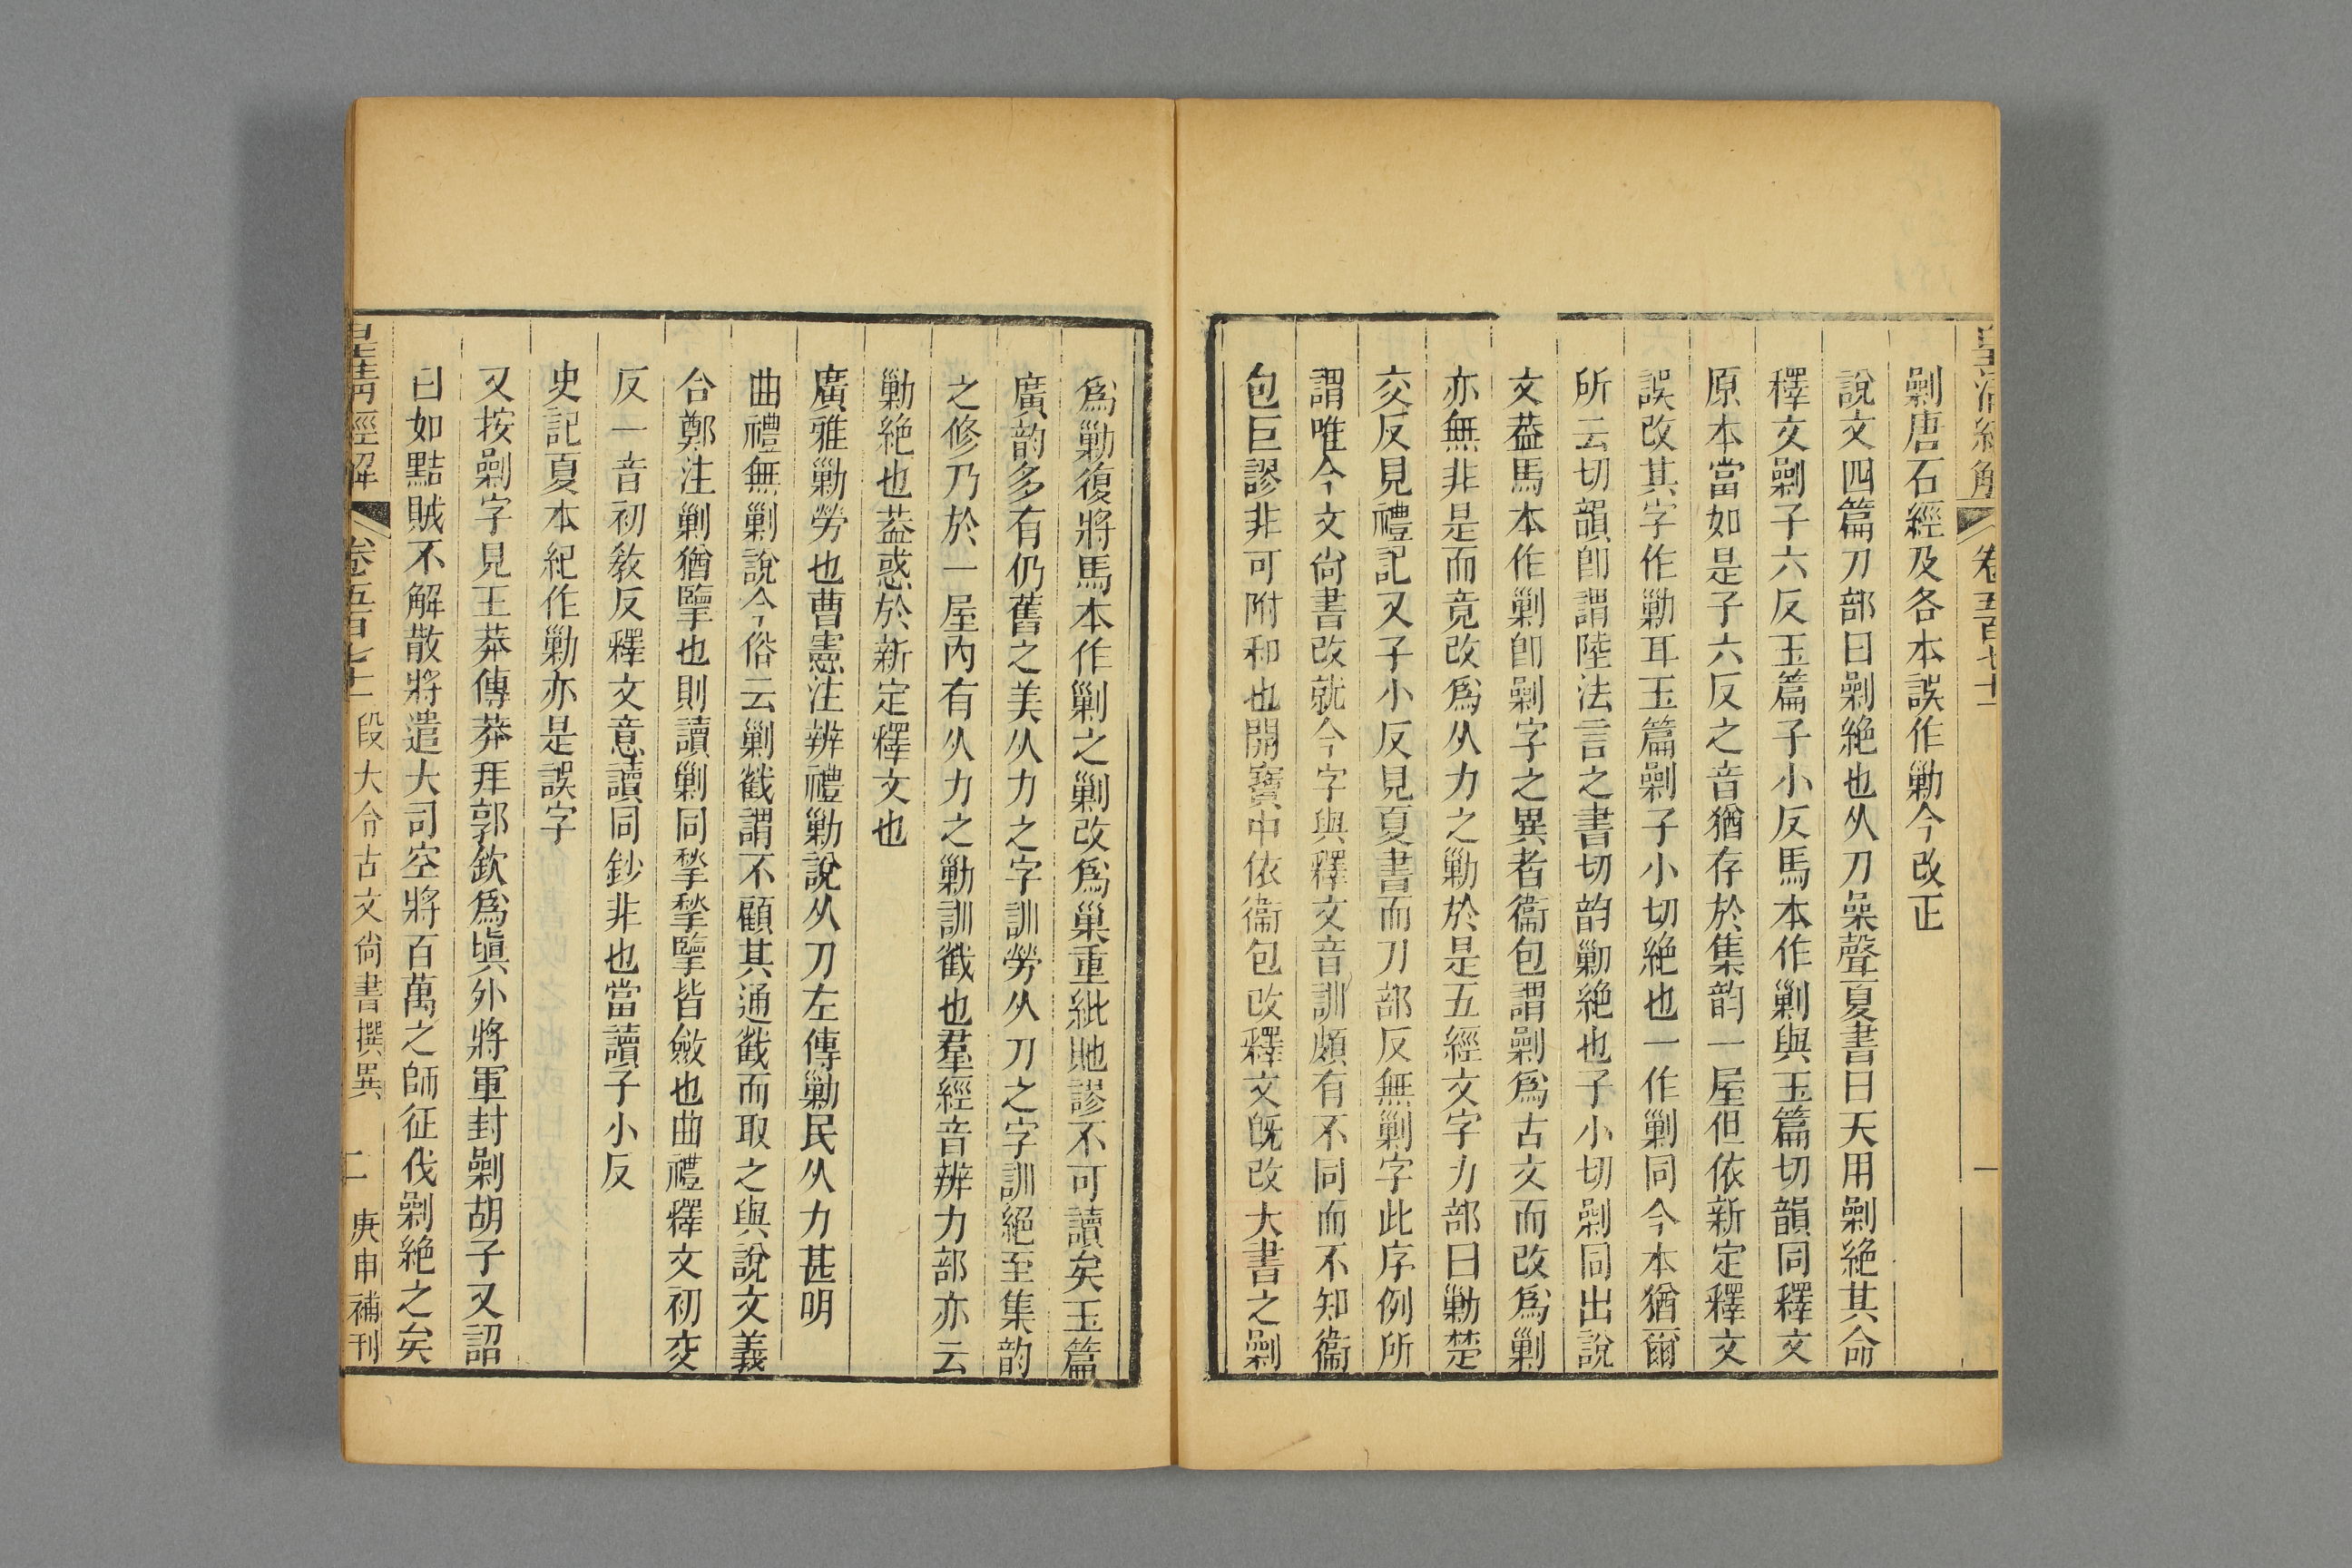 皇清經解 卷五百七十一 一
剿唐石經及各本誤作勦今改正
說文四篇刀部曰剿絕也从刀喿聲夏書曰天用剿絕其命
釋文剿子六反玉篇子小反馬本作剿與玉篇切韻同釋文
原本當如是子六反之音猶存於集韵一屋但依新定釋文
誤改其字作勦耳玉篇剿子小切絕也一作剿同今本猶爾
所云切韻卽謂陸法言之書切韵勦絕也子小切剿同出說
文葢馬本作剿卽剿字之異者衞包謂剿爲古文而改爲剿
亦無非是而竟改爲从力之勦於是五經文字力部曰勦楚
交反見禮記又子小反見夏書而刀部反無剿字此序例所
謂唯今文尙書改就今字與釋文音訓頗有不同而不知衞
包巨謬非可附和也開寶中依衞包改釋文旣改大書之剿
爲勦復將馬本作剿之剿改爲巢重紕貤謬不可讀矣玉篇
廣韵多有仍舊之美从力之字訓勞从刀之字訓絕至集韵
之修乃於一屋內有从力之勦訓截也羣經音辨力部亦云
勦絕也葢惑於新定釋文也
廣雅勦勞也曹憲注辨禮勦說从刀左傳勦民从力甚明
曲禮無剿說今俗云剿截謂不顧其通截而取之與說文義
合鄭注剿猶擥也則讀剿同揫揫擥皆斂也曲禮釋文初交
反一音初敎反釋文意讀同鈔非也當讀子小反
史記夏本紀作勦亦是誤字
又按剿字見王莽傳莽拜郭欽爲塡外將軍封剿胡子又詔
曰如黠賊不解散將遣大司空將百萬之師征伐剿絕之矣
皇清經解 卷五百七十一 段大令古文尙書撰異 二 庚申補刊